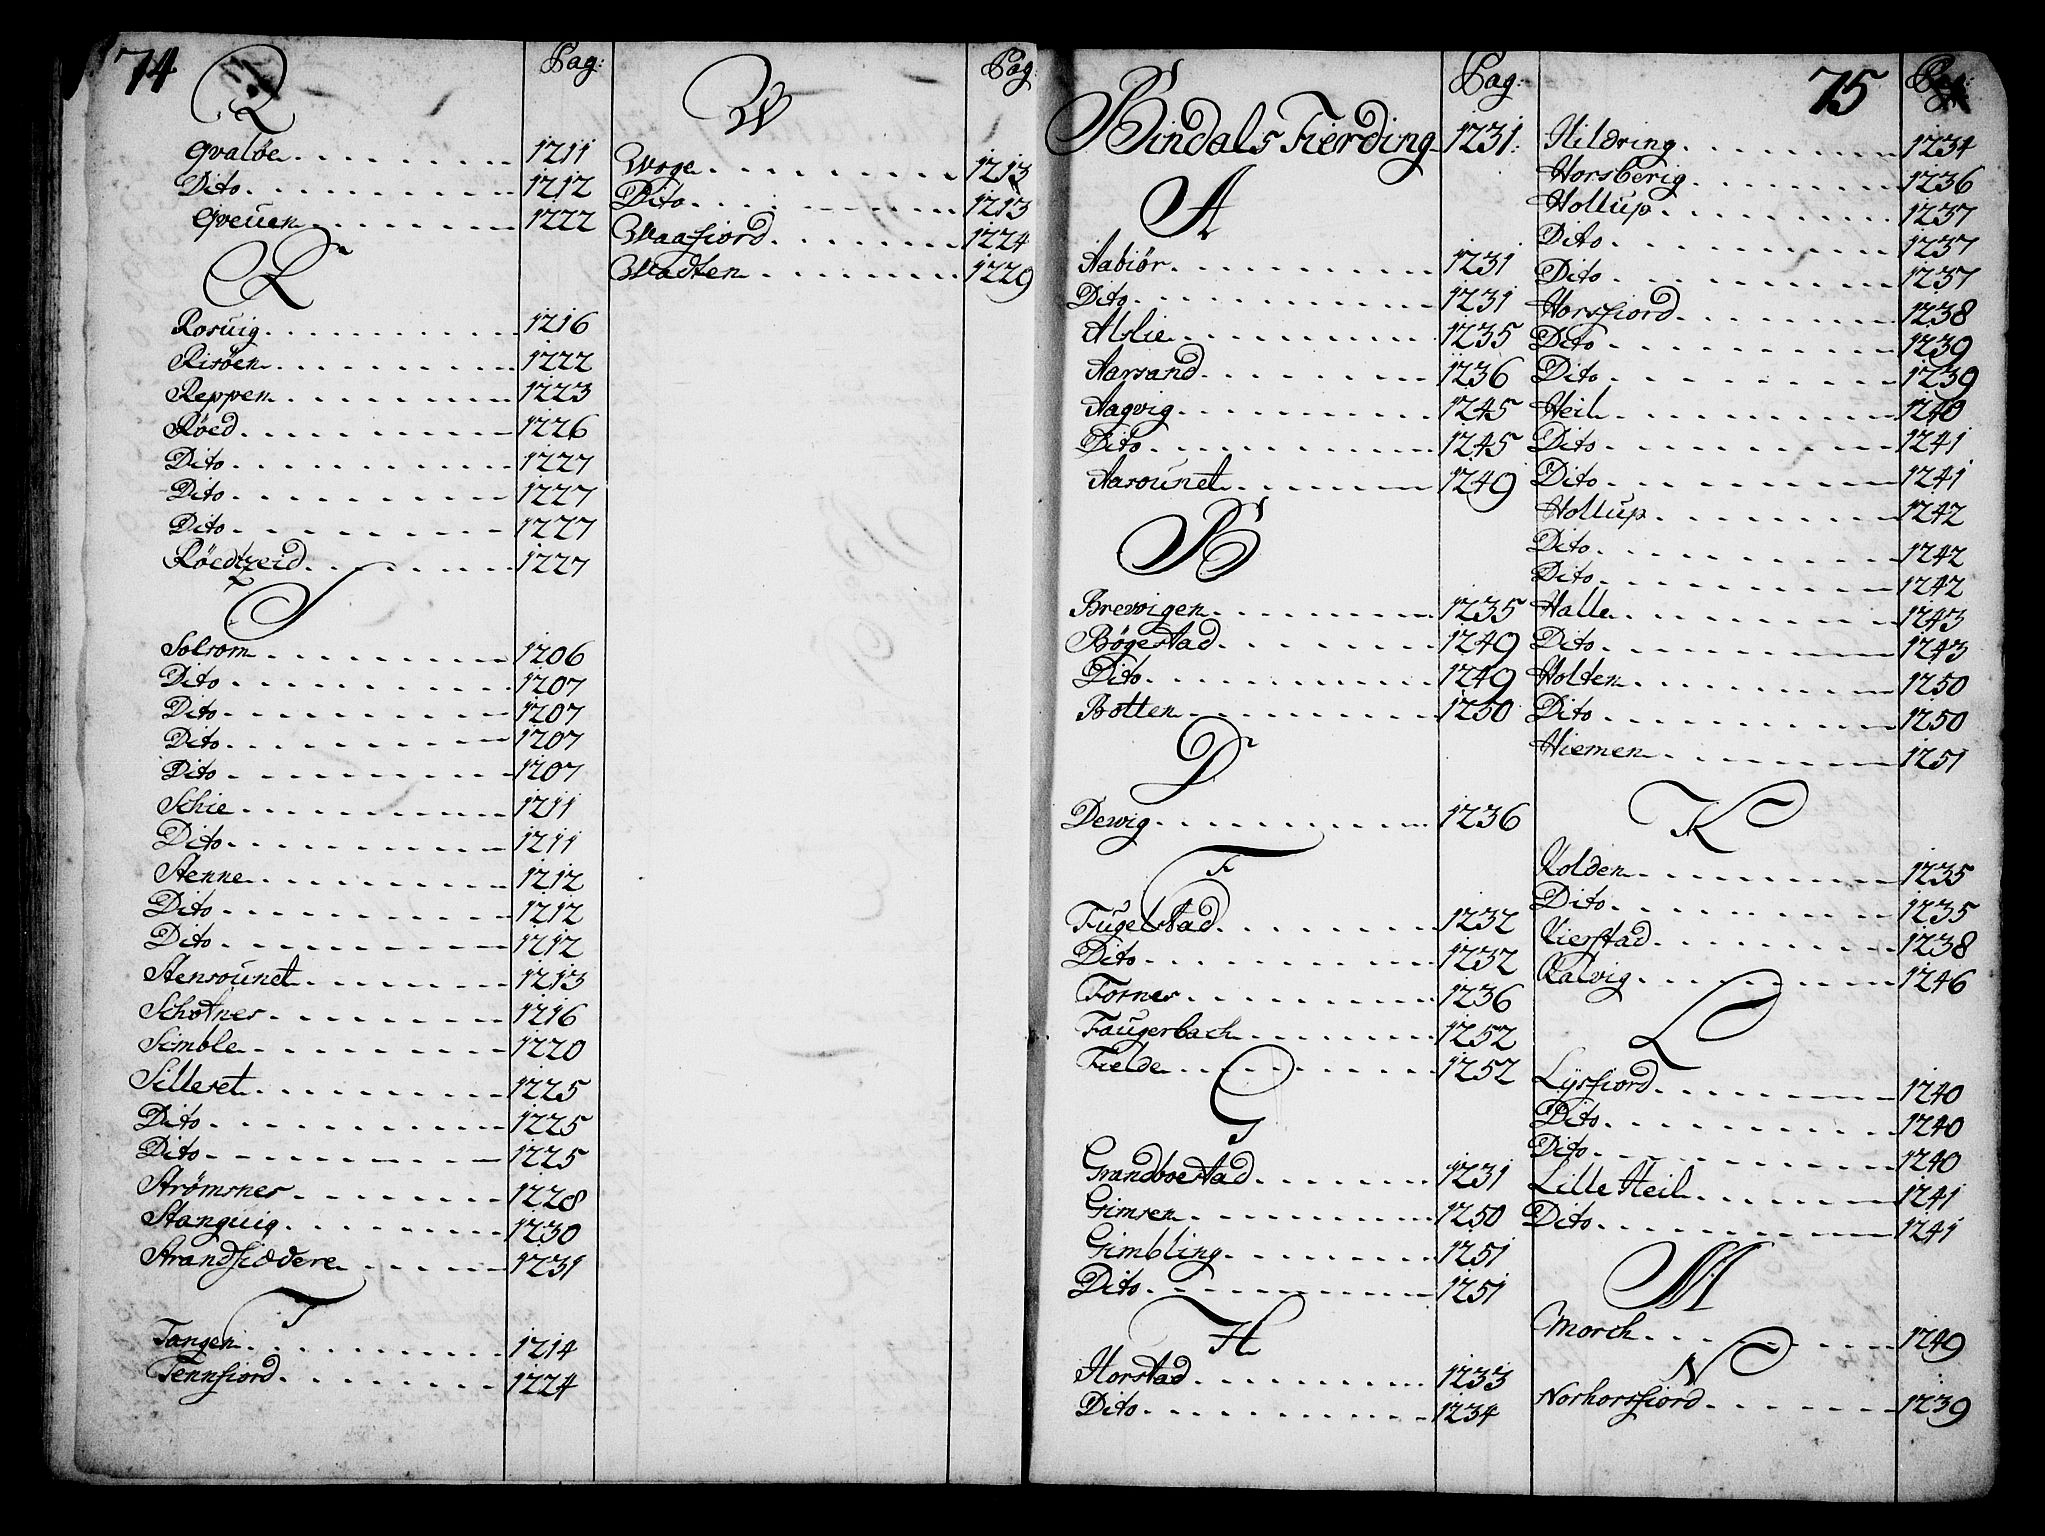 74
Pag:
Q
Qvaløe 1211
Dito 1212
Qveüen 1222
R
Rosuig 1216
Risøen 1222
Reppen 1223
Røed 1226
Dito 1227
Dito 1227
Dito 1227
Røedtzeid 1227
S
Solsom 1206
Dito 1207
Dito 1207
Dito 1207
Dito 1207
Schie 1211
Dito 1211
Stenne 1212
Dito 1212
Dito 1212
Stensounet 1213
Schotnes 1216
Simble 1220
Silleset 1225
Dito 1225
Dito 1225
Strømsnes 1228
Stanguig 1230
Strandfiædere 1231
T
Tangen 1214
Tennfiord 1224
Pag:
W
Woge 1213
Dito 1213
Waafiord 1224
Wadten 1229
Pag:
Bindals Fierding 1231:
A
Aabiør 1231
Dito 1231
Alslie 1235
Aarsand 1236
Aagvig 1245
Dito 1245
Aarounet 1249
B
Brewigen 1235
Bøgestad 1249
Dito 1249
Botten 1250
D
Dewig 1236
F
Fugelstad 1232
Dito 1232
Fornes 1236
Faugerbach 1252
Fielde 1252
G
Grandboestad 1231
Gimsen 1250
Gimbling 1251
Dito 1251
H
Horstad 1233
Dito 1234
75
Pag:
Hildring 1234
Horsberig 1236
Hollup 1237
Dito 1237
Dito 1237
Horsfiord 1238
Dito 1239
Dito 1239
Heil 1240
Dito 1241
Dito 1241
Hollup 1242
Dito 1242
Dito 1242
Halle 1243
Dito 1243
Holten 1250
Dito 1250
Hiemen 1251
K
Kolden 1235
Dito 1235
Kierstad 1238
Kalvig 1246
L
Lysfiord 1240
Dito 1240
Dito 1240
Lille Heil 1241
Dito 1241
M
Morch 1249
N
Norhorsfiord 1239